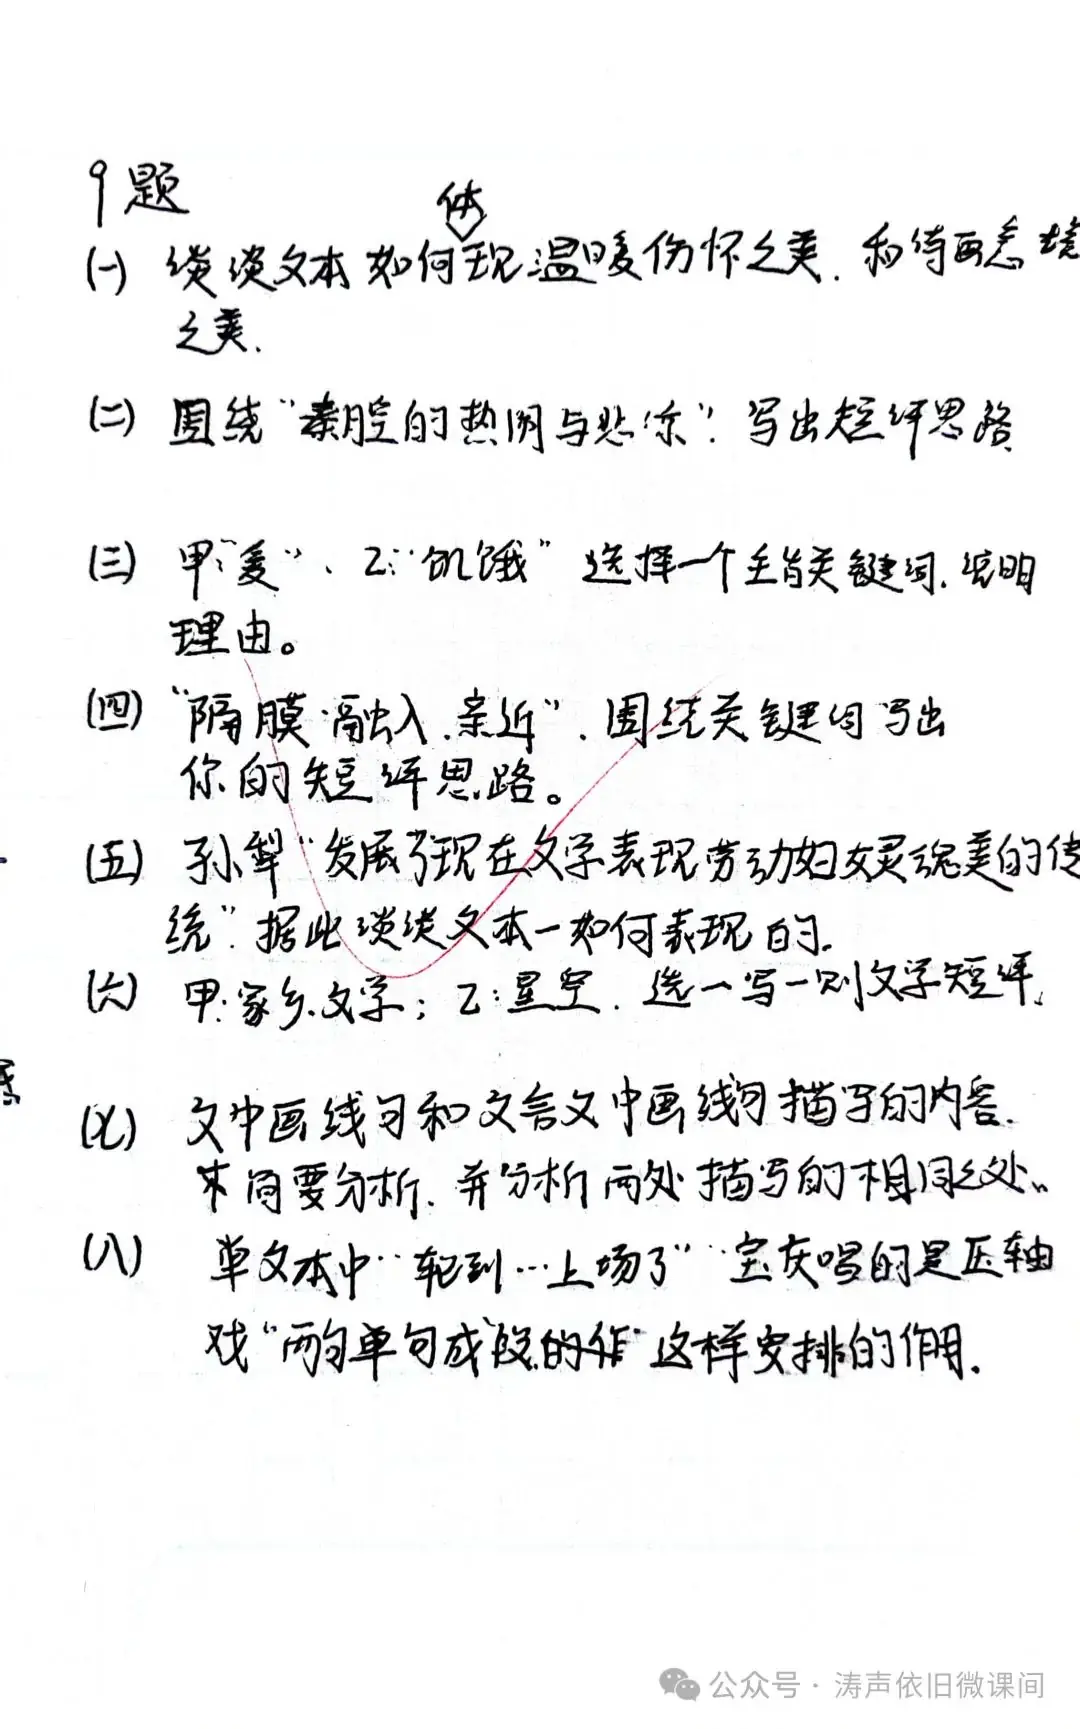 9题
(一) 谈谈文本如何体现温暖伤怀之美.和诗画意境
之美.
(二) 围绕“秦腔的热闹与悲凉”.写出短评思路
(三) 甲:“麦”、乙:“饥饿”选择一个主旨关键词.说明
理由。
(四) “隔膜.融入.亲近”.围绕关键词写出
你的短评思路。
(五) 孙犁“发展了现在文学表现劳动妇女灵魂美的传
统”.据此谈谈文本一如何表现的.
(六) 甲:家乡文学;乙:星空.选一写一则文学短评.
(七) 文中画线句和文言文中画线句描写的内容.
简要分析.并分析两处描写的相同之处.
(八) 单文本中“轮到…上场了”“宝庆唱的是压轴
戏“两句单句成段的作 这样安排的作用.
公众号·涛声依旧微课间